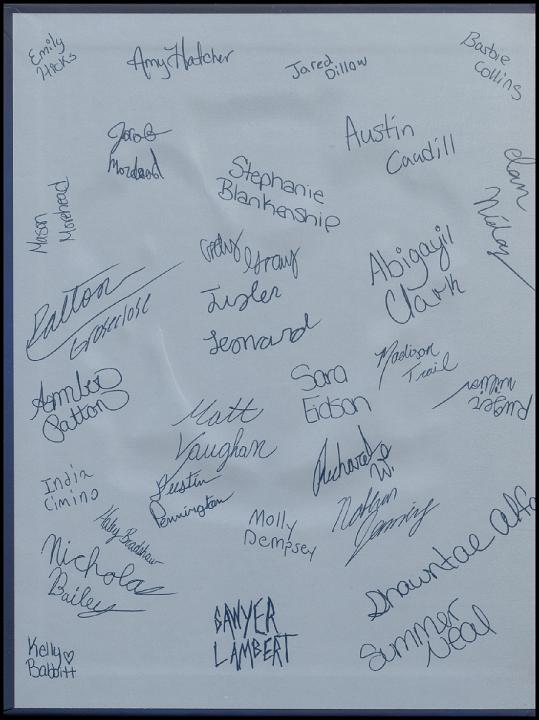 Emily
Hicks
Amy Hatcher
Jared
Dillow
Barbie
Collins
Jacob
Morehead
Austin
Caudill
Stephanie
Blankenship
Mason
Morehead
Cody Gray
Abigayil
Clark
Dalton
Groseclose
Tyler
Leonard
Madison
Trail
Sara
Eidson
Patton
Matt
Vaughan
Richard
W.
India
Cimino
Justin
Pennington
Nathan
Haley Bradshaw
Molly
Dempsey
Nicholas
Bailey
Shawntae
SAWYER
LAMBERT
Summer
Neal
Kelly♡
Babbitt